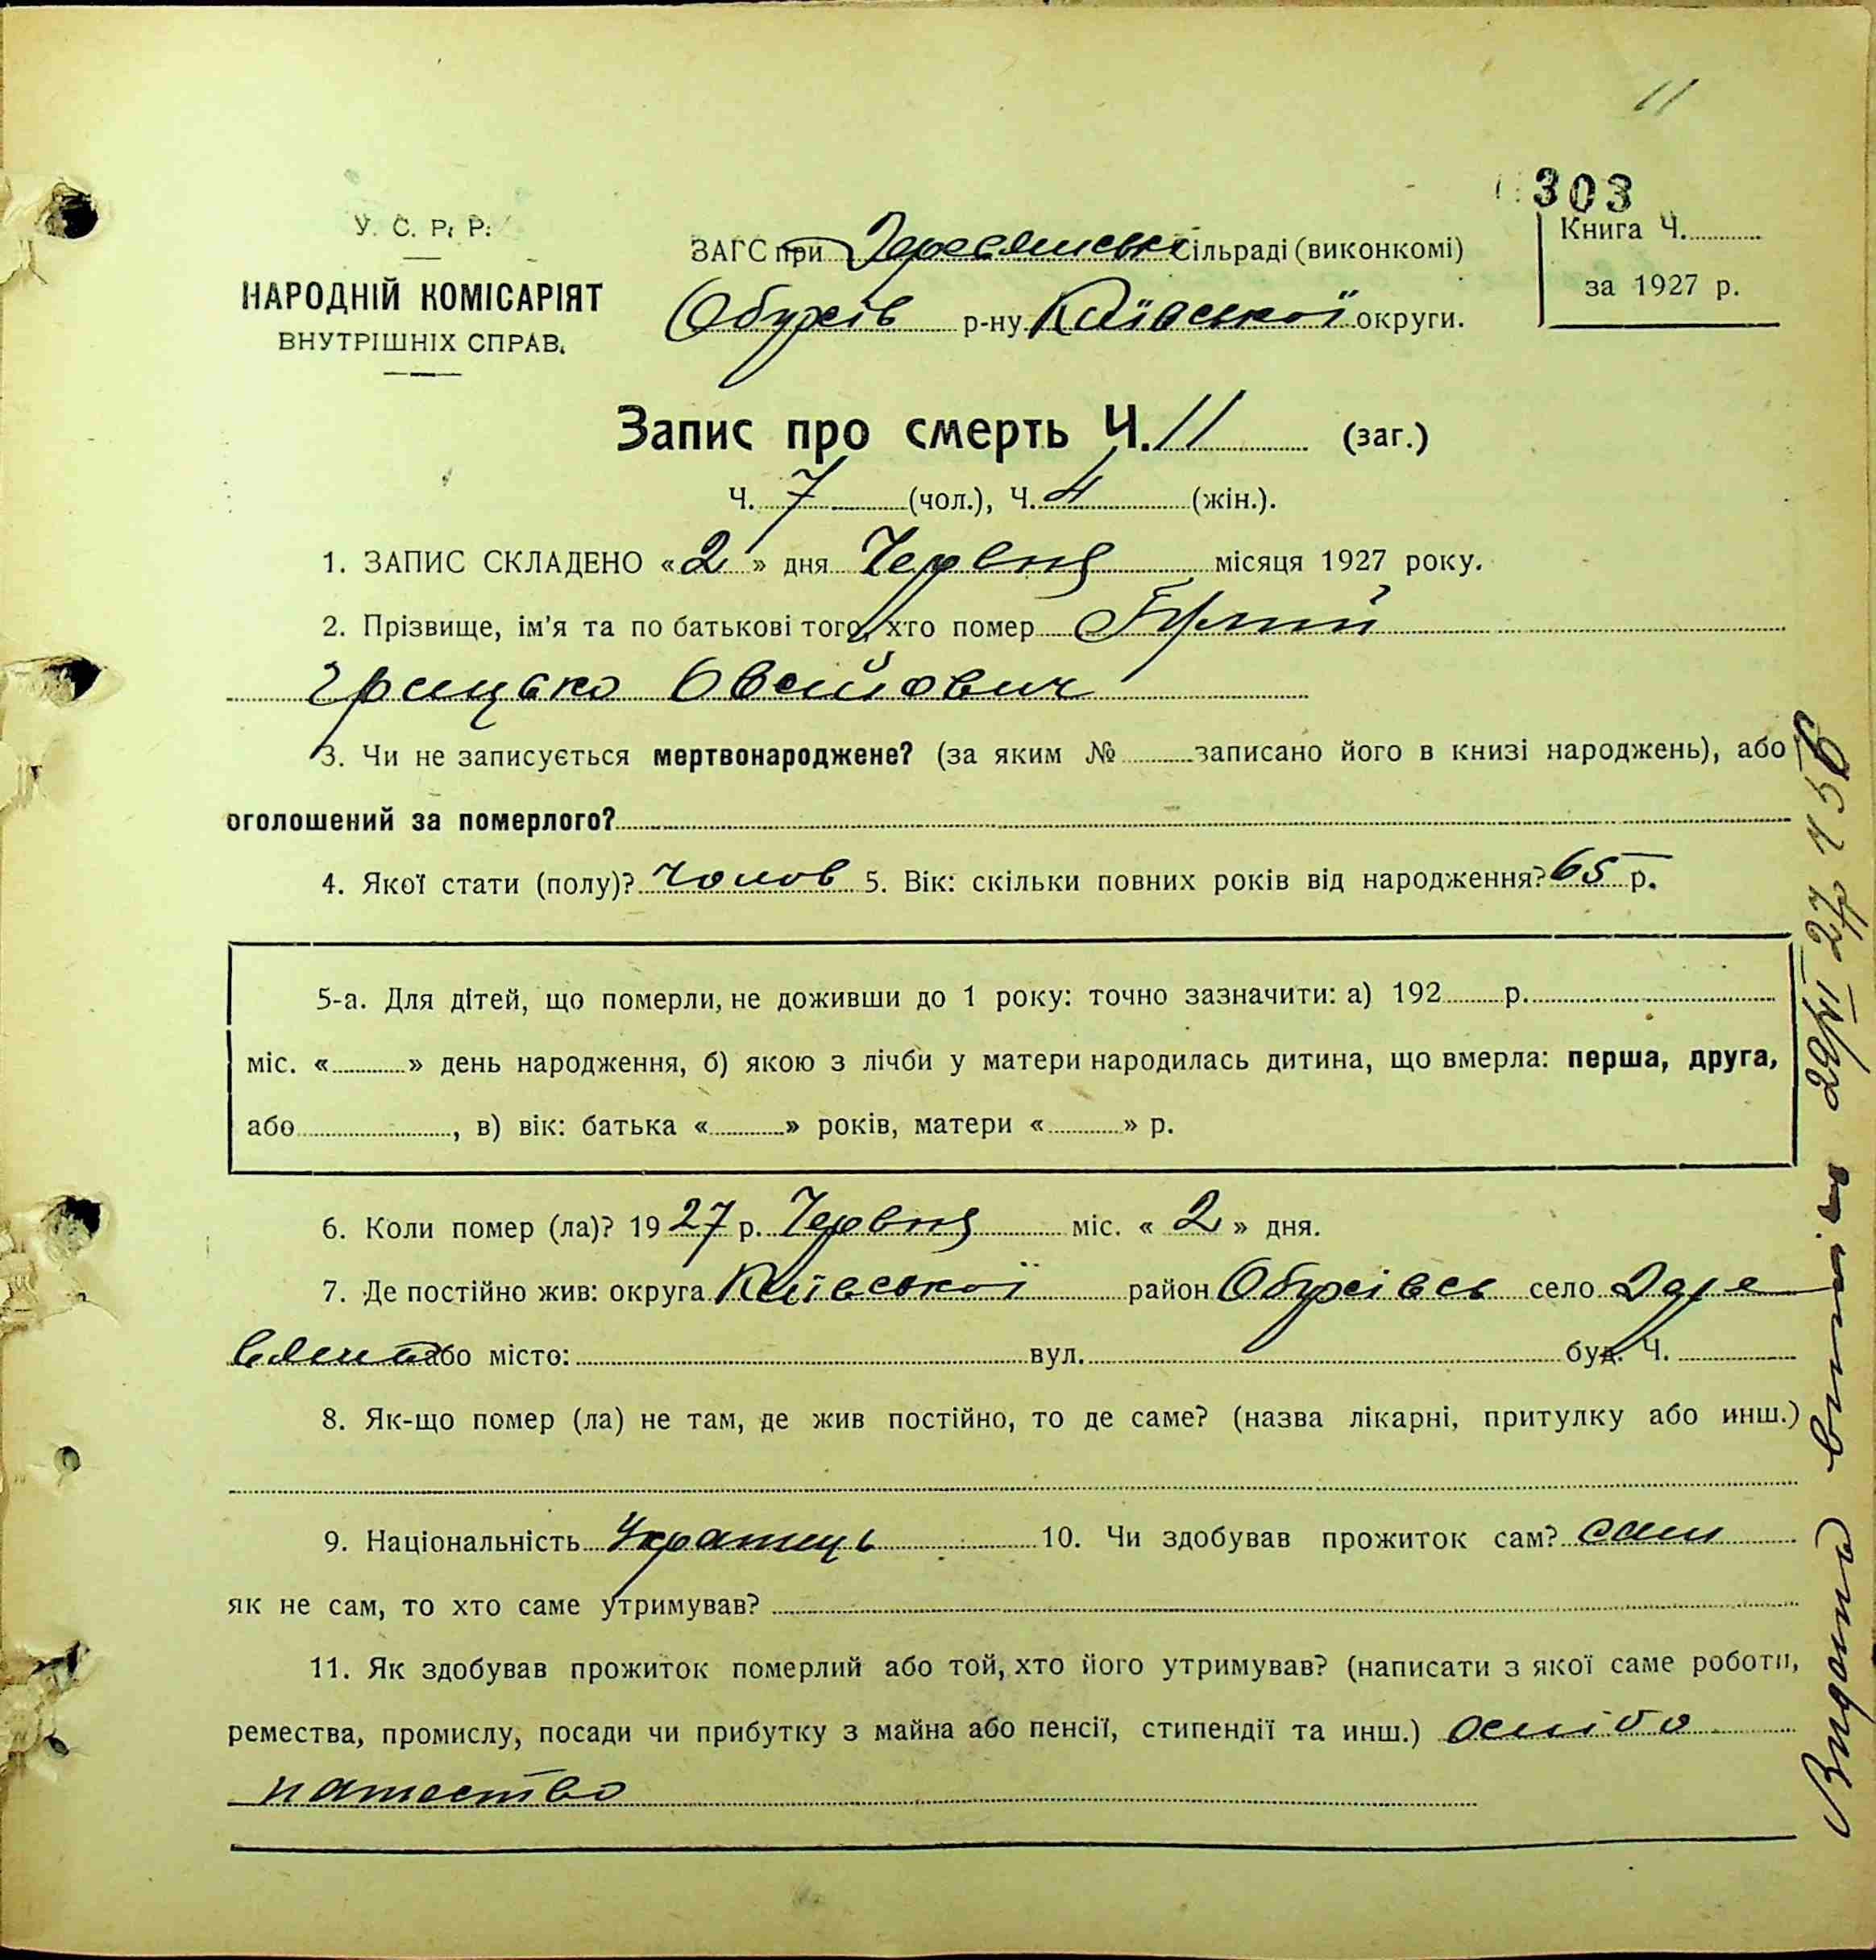 11
303
У. С. Р. Р.
НАРОДНІЙ КОМІСАРІЯТ
ВНУТРІШНІХ СПРАВ.
ЗАГС при Деревянськ сільраді (виконкомі)
Обухів р-ну Київської округи.
Книга Ч.
за 1927 р.
Запис про смерть Ч. 11 (заг.)
Ч. 7 (чол.), Ч. 4 (жін.).
1. ЗАПИС СКЛАДЕНО «2» дня Червня місяця 1927 року.
2. Прізвище, ім'я та по батькові того, хто помер
Грицько Овсійович
3. Чи не записується мертвонароджене? (за яким № записано його в книзі народжень), або
оголошений за померлого?
4. Якої стати (полу)? Чолов 5. Вік: скільки повних років від народження? 65 р.
5-а. Для дітей, що померли, не доживши до 1 року: точно зазначити: а) 192 р.
міс. « » день народження, б) якою з лічби у матери народилась дитина, що вмерла: перша, друга,
або , в) вік: батька « » років, матери « » р.
6. Коли помер (ла)? 1927 р. Червня міс. «2» дня.
7. Де постійно жив: округа Київської район Обухівськ село Дере
вяна або місто: вул. буд. Ч.
8. Як-що помер (ла) не там, де жив постійно, то де саме? (назва лікарні, притулку або инш.)
9. Національність Українець 10. Чи здобував прожиток сам? сам
як не сам, то хто саме утримував?
11. Як здобував прожиток померлий або той, хто його утримував? (написати з якої саме роботи,
ремества, промислу, посади чи прибутку з майна або пенсії, стипендії та инш.)
Видано витяг